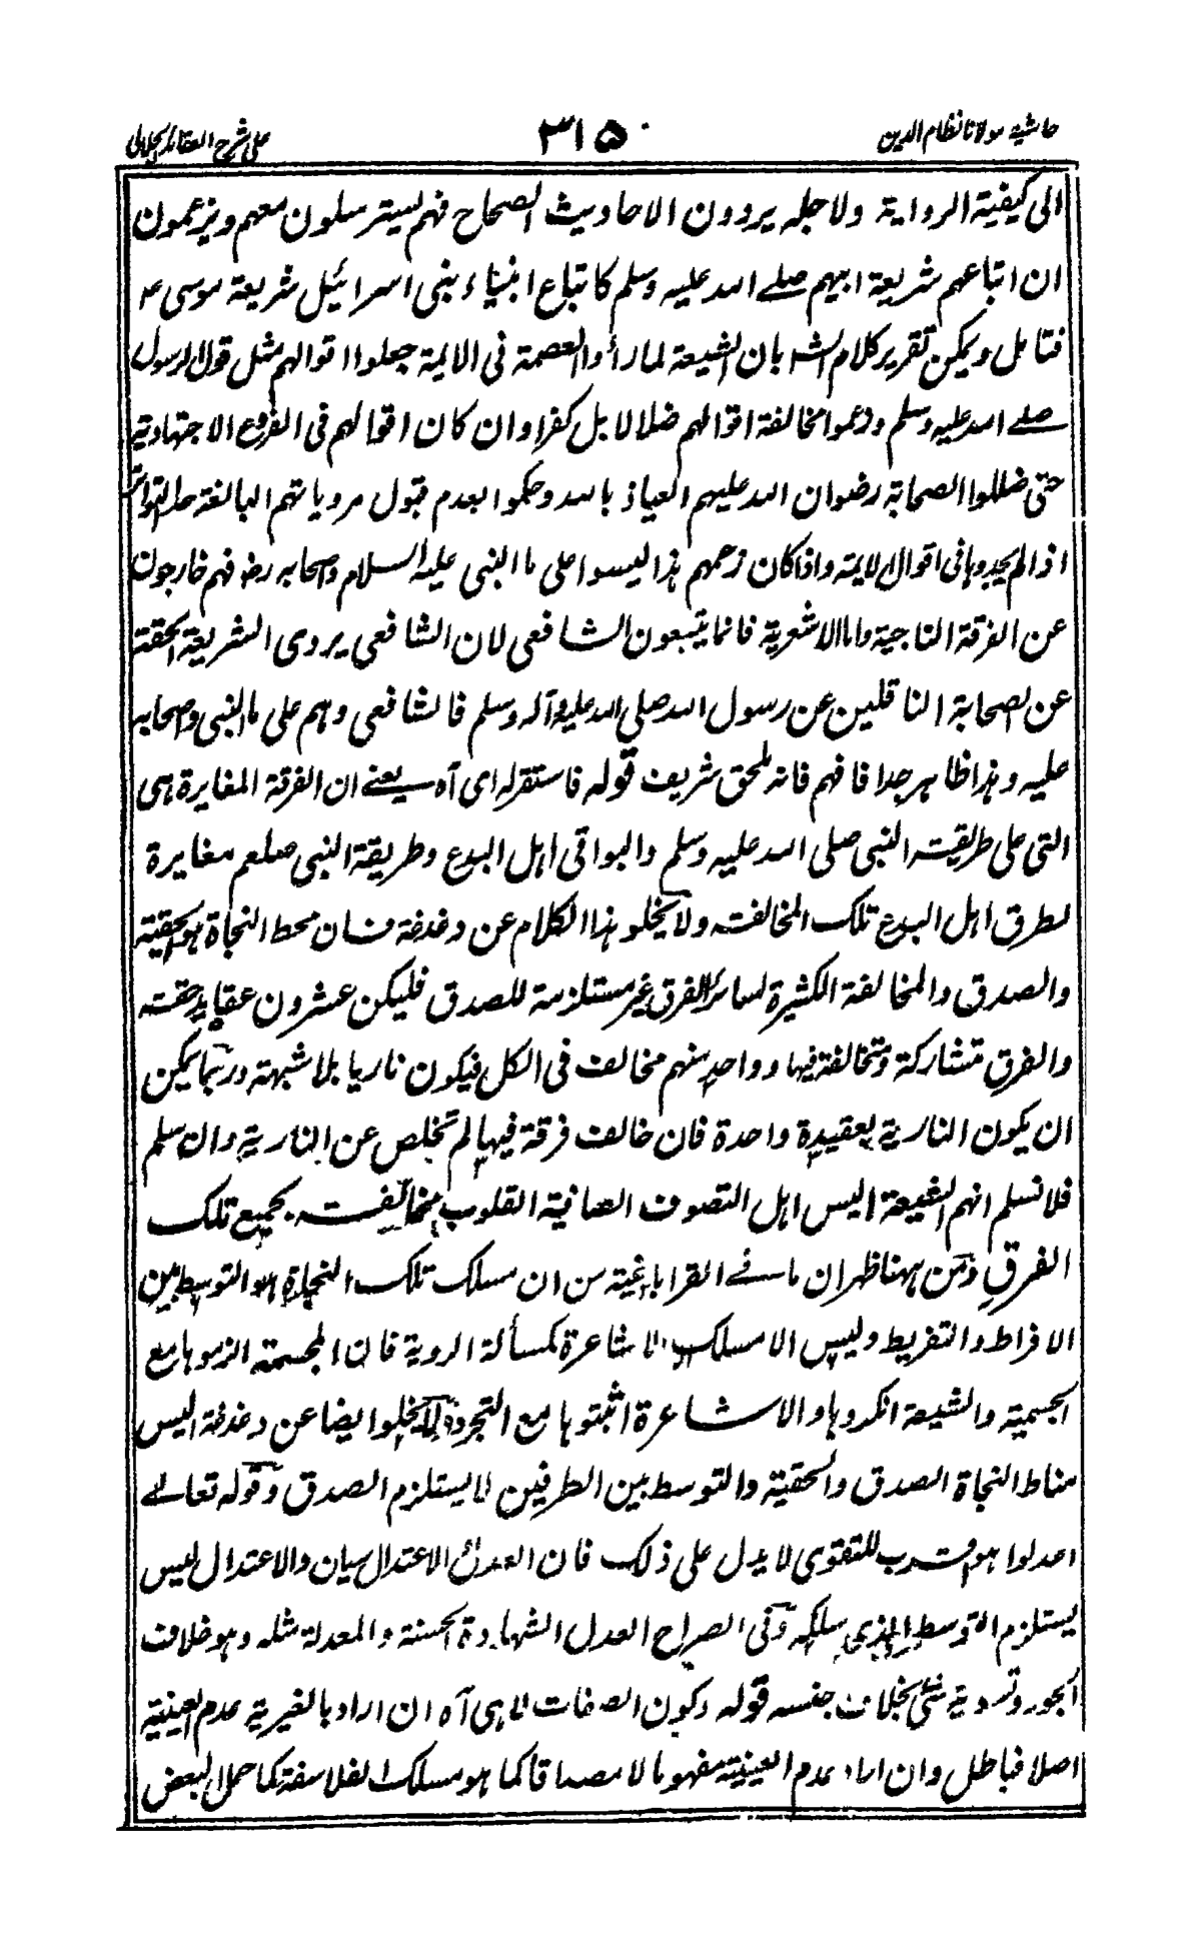 حاشیه مولانا نظام الدین ۳۱۵ علی شرح العقائد الجلالی
الی کیفیة الروایة ولاجله یردون الاحادیث الصحاح فهم یسترسلون معهم ویزعمون
ان اتباعهم شریعة ابیهم صلے الله علیه وسلم کاتباع انبیاء بنی اسرائیل شریعة موسی ع
فتامل ویمکن تقریر کلام الش بان الشیعة لما رأوا العصمة فی الایمة جعلوا اقوالهم مثل قول الرسول
صلے الله علیه وسلم وزعموا مخالفة اقوالهم ضلالا بل کفرا وان کان اقوالهم فی الفروع الاجتهادیة
حتی ضللوا الصحابة رضوان الله علیهم العیاذ بالله وحکموا بعدم قبول مرویاتهم البالغة حد التواتر
اذا لم یجدوها فی اقوال الایمة واذا کان زعمهم هذا لیسوا علی ما النبی علیه السلام وصحابه رض فهم خارجون
عن الفرقة الناجیة واما الاشعریة فانما یتبعون الشافعی لان الشافعی یروی الشریعة الحقة
عن الصحابة الناقلین عن رسول الله صلی الله علیه وآله وسلم فالشافعی وهم علی ما النبی وصحابه
علیه وهذا ظاهر جدا فافهم فانه ملحق شریف قوله فاستقر له ای آه یعنے ان الفرقة المغایرة هی
التی علی طریقت النبی صلی الله علیه وسلم والبواقی اهل البدع وطریقة النبی صلعم مغایرة
لطرق اهل البدع تلک المخالفت ولا یخلو هذا الکلام عن دغدغة فان محط النجاة هو الحقیة
والصدق والمخالفة الکثیرة لسائر الفرق غیر مستلزمة للصدق فلیکن عشرون عقاید حقت
والفرق متشارکة ومتخالفة فیها وواحد منهم مخالف فی الکل فیکون ناریا بلا شبهة وربما یمکن
ان یکون الناریة بعقیدة واحدة فان خالف فرقة فیها لم تخلص عن الناریة وان سلم
فلا نسلم انهم الشیعة الیس اهل التصوف الصافیة القلوب مخالفت بجمیع تلک
الفرق ومن ههنا ظهر ان ما فے القراباغیة من ان مسلک تلک النجاة هو التوسط بین
الافراط والتفریط ولیس الا مسلک الاشاعرة کمسألة الرویة فان المجسمة الزموها مع
الجسمیة والشیعة انکروها والاشاعرة اثبتوها مع التجرد لا یخلو ایضا عن دغدغة الیس
مناط النجاة الصدق والحقیة والتوسط بین الطرفین لا یستلزم الصدق وقوله تعالے
اعدلوا هو اقرب للتقوی لا یدل علی ذلک فان العدل الاعتدال سیان والاعتدال لیس
یستلزم التوسط الذی سلکه وفی الصراح العدل الشهادة الحسنة والمعدلة مثله وهو خلاف
الجور وتسویة شئ بخلاف جنسه قوله وکون الصفات لا هی آه ان اراد بالغیریة عدم العینیة
اصلا فباطل وان اراد عدم العینیة مفهوما لا مصداقا کما هو مسلک الفلاسفة کما حمل البعض